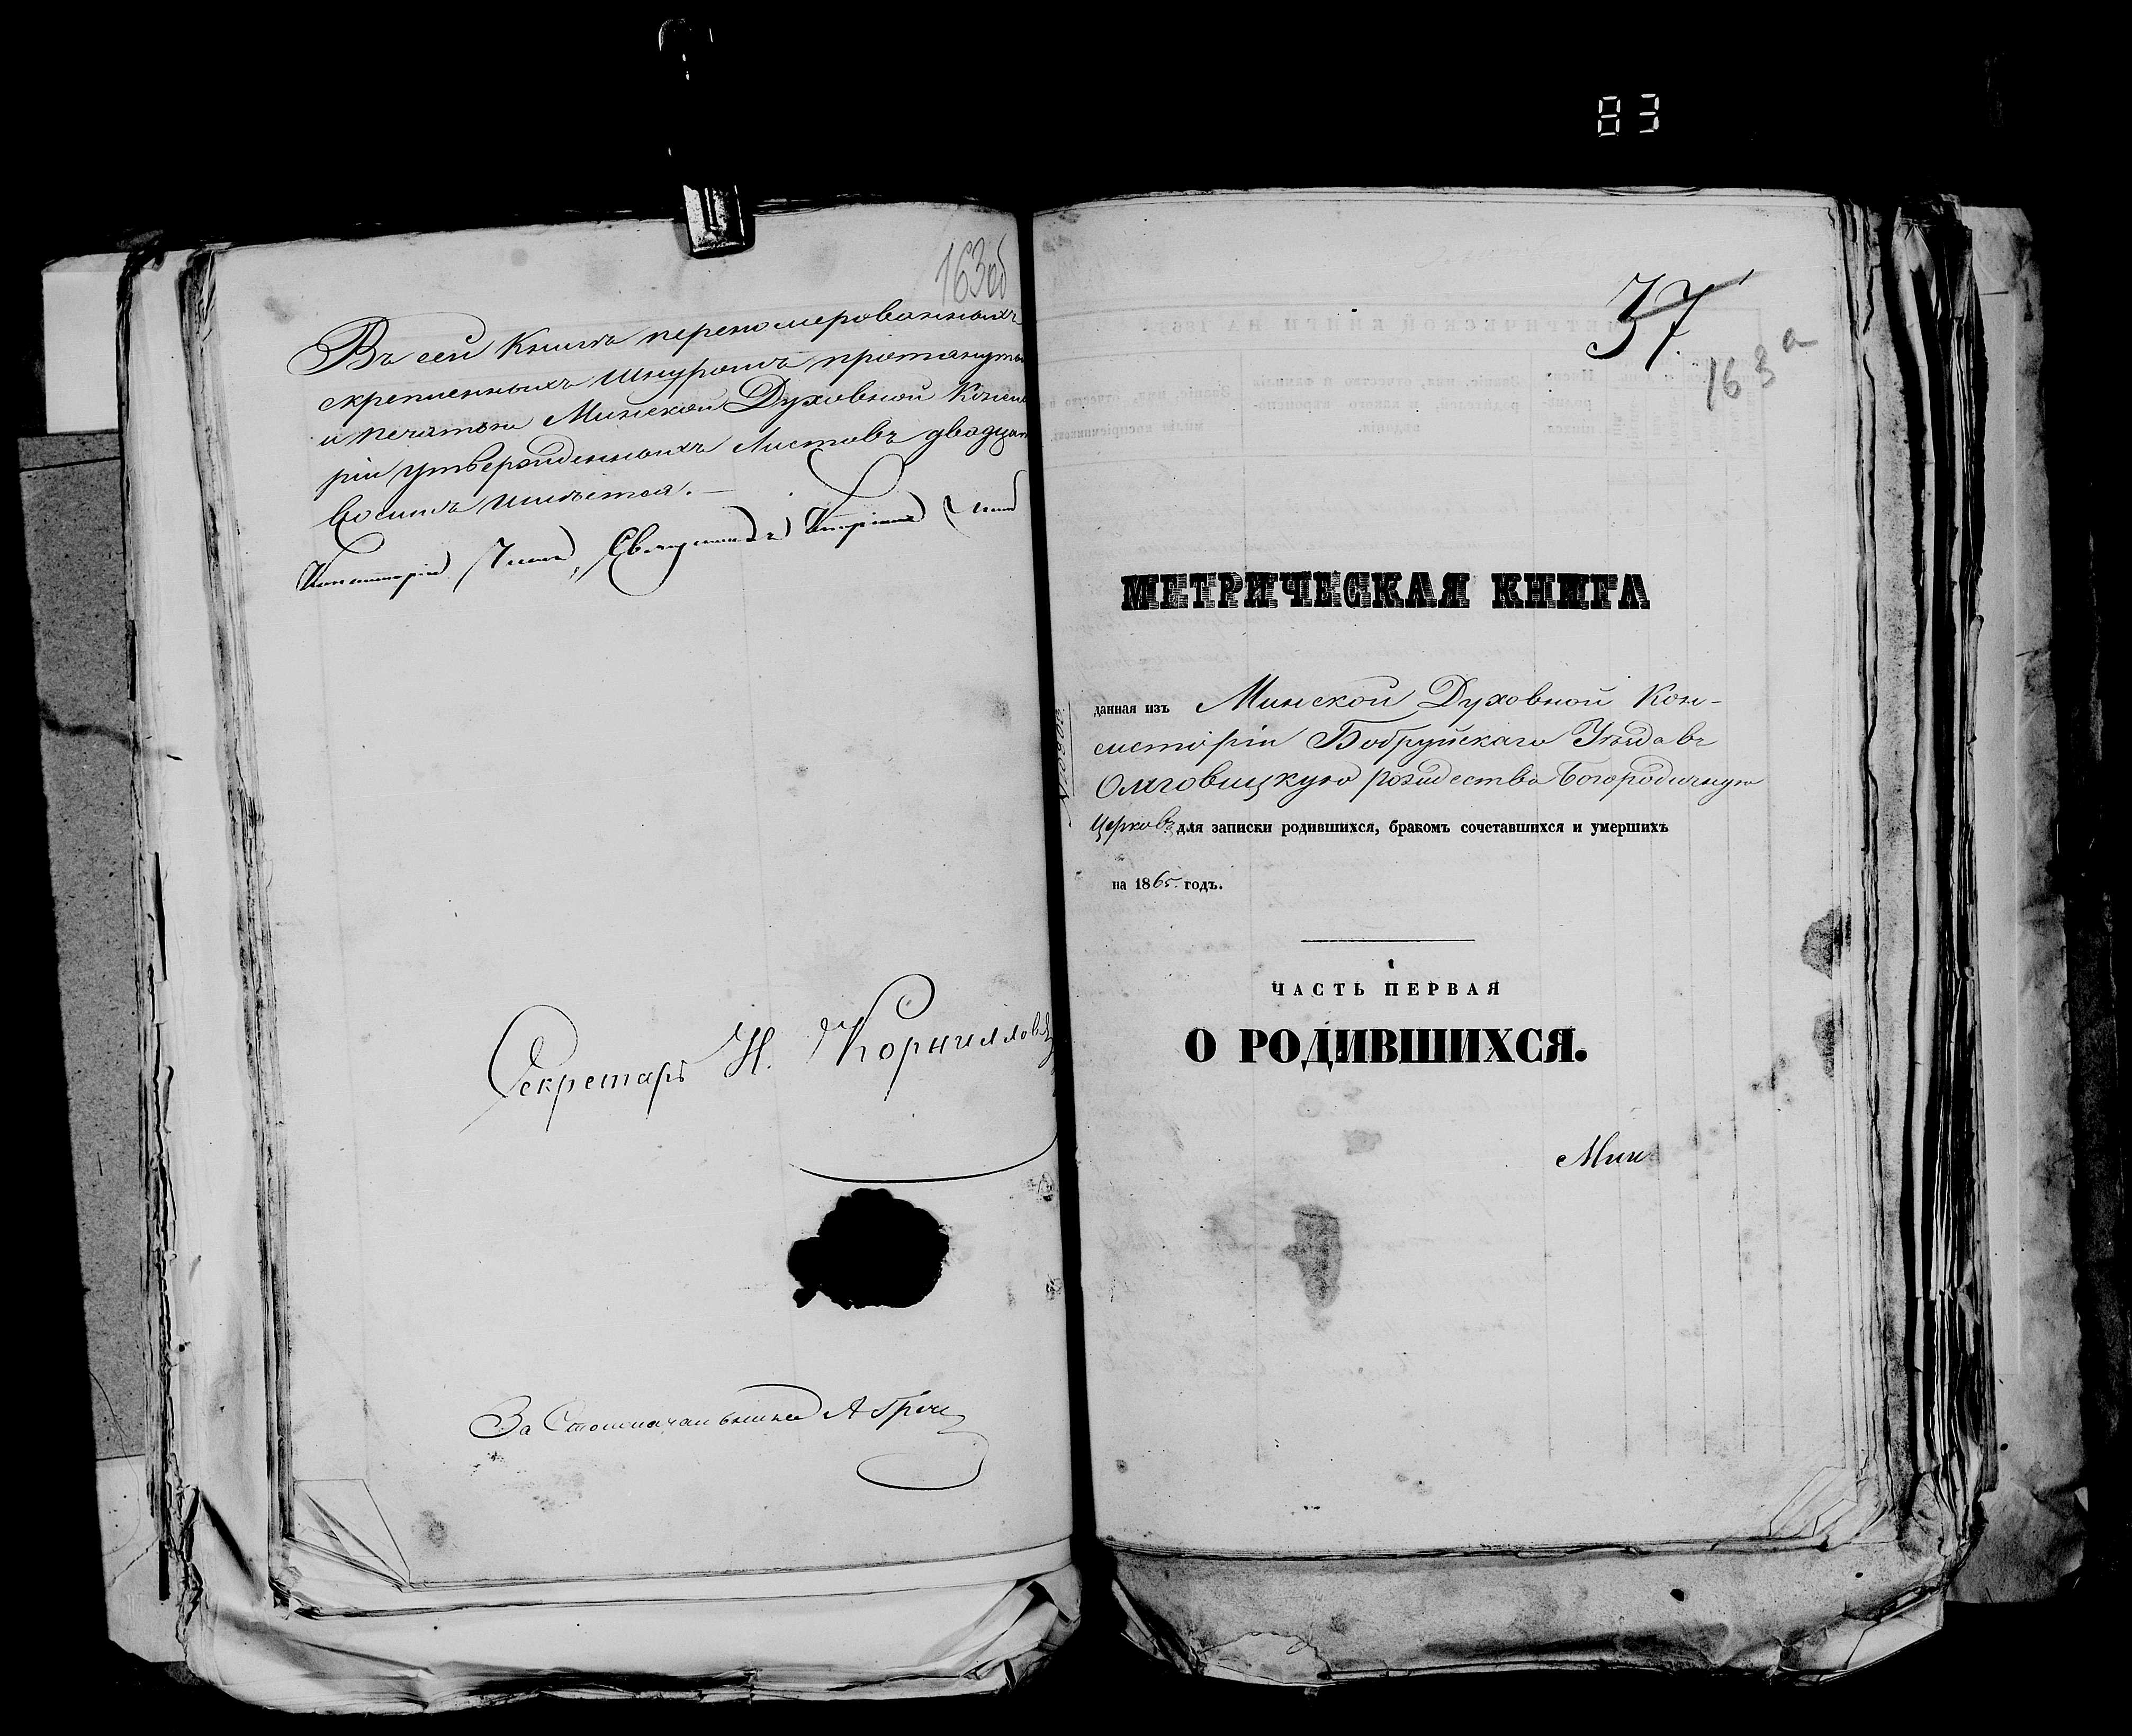 83
163об
Въ сей Книгѣ перенумерованныхъ
скрепленныхъ шнуромъ протянутых
и печатью Минской Духовной Консис
ріи утвержденныхъ Листовъ двадцат
восемь имѣется.—
Членъ, Священникъ
Секретарь Н. Корниллов
За Столоначальника А
37.
163а
МЕТРИЧЕСКАЯ КНИГА
данная изъ Минской Духовной Кон-
систоріи Бобруйскаго Уѣзда въ
Омговицкую рождество Богородичную
Церковь для записки родившихся, бракомъ сочетавшихся и умершихъ
на 1865. годъ.
ЧАСТЬ ПЕРВАЯ
О РОДИВШИХСЯ.
Мин